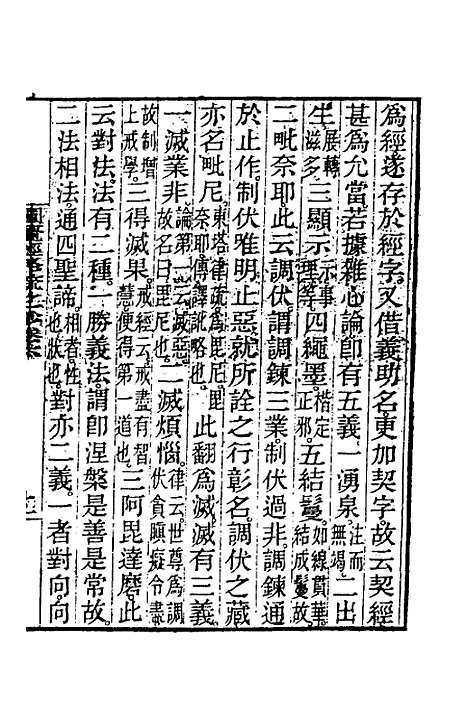 爲經遂存於經字又借義助名更加契字故云契經
甚爲允當若據雜心論卽有五義一湧泉注而無竭二出
生展轉滋多三顯示示事理等四繩墨楷定正邪五結鬘如線貫華結成鬘故
二毗奈耶此云調伏謂調鍊三業制伏過非調鍊通
於止作制伏唯明止惡就所詮之行彰名調伏之藏
亦名毗尼東塔律疏爲毘尼毘奈耶傳譯訛略也此翻爲滅滅有三義
一滅業非論第一云滅惡故名曰毘尼也二滅煩惱律云世尊爲調伏貪瞋癡令盡
故制增上戒學三得滅果戒經云戒盡有智慧便得第一道也三阿毘達磨此
云對法法有二種一勝義法謂卽涅槃是善是常故
二法相法通四聖諦相者性也狀也對亦二義一者對向向